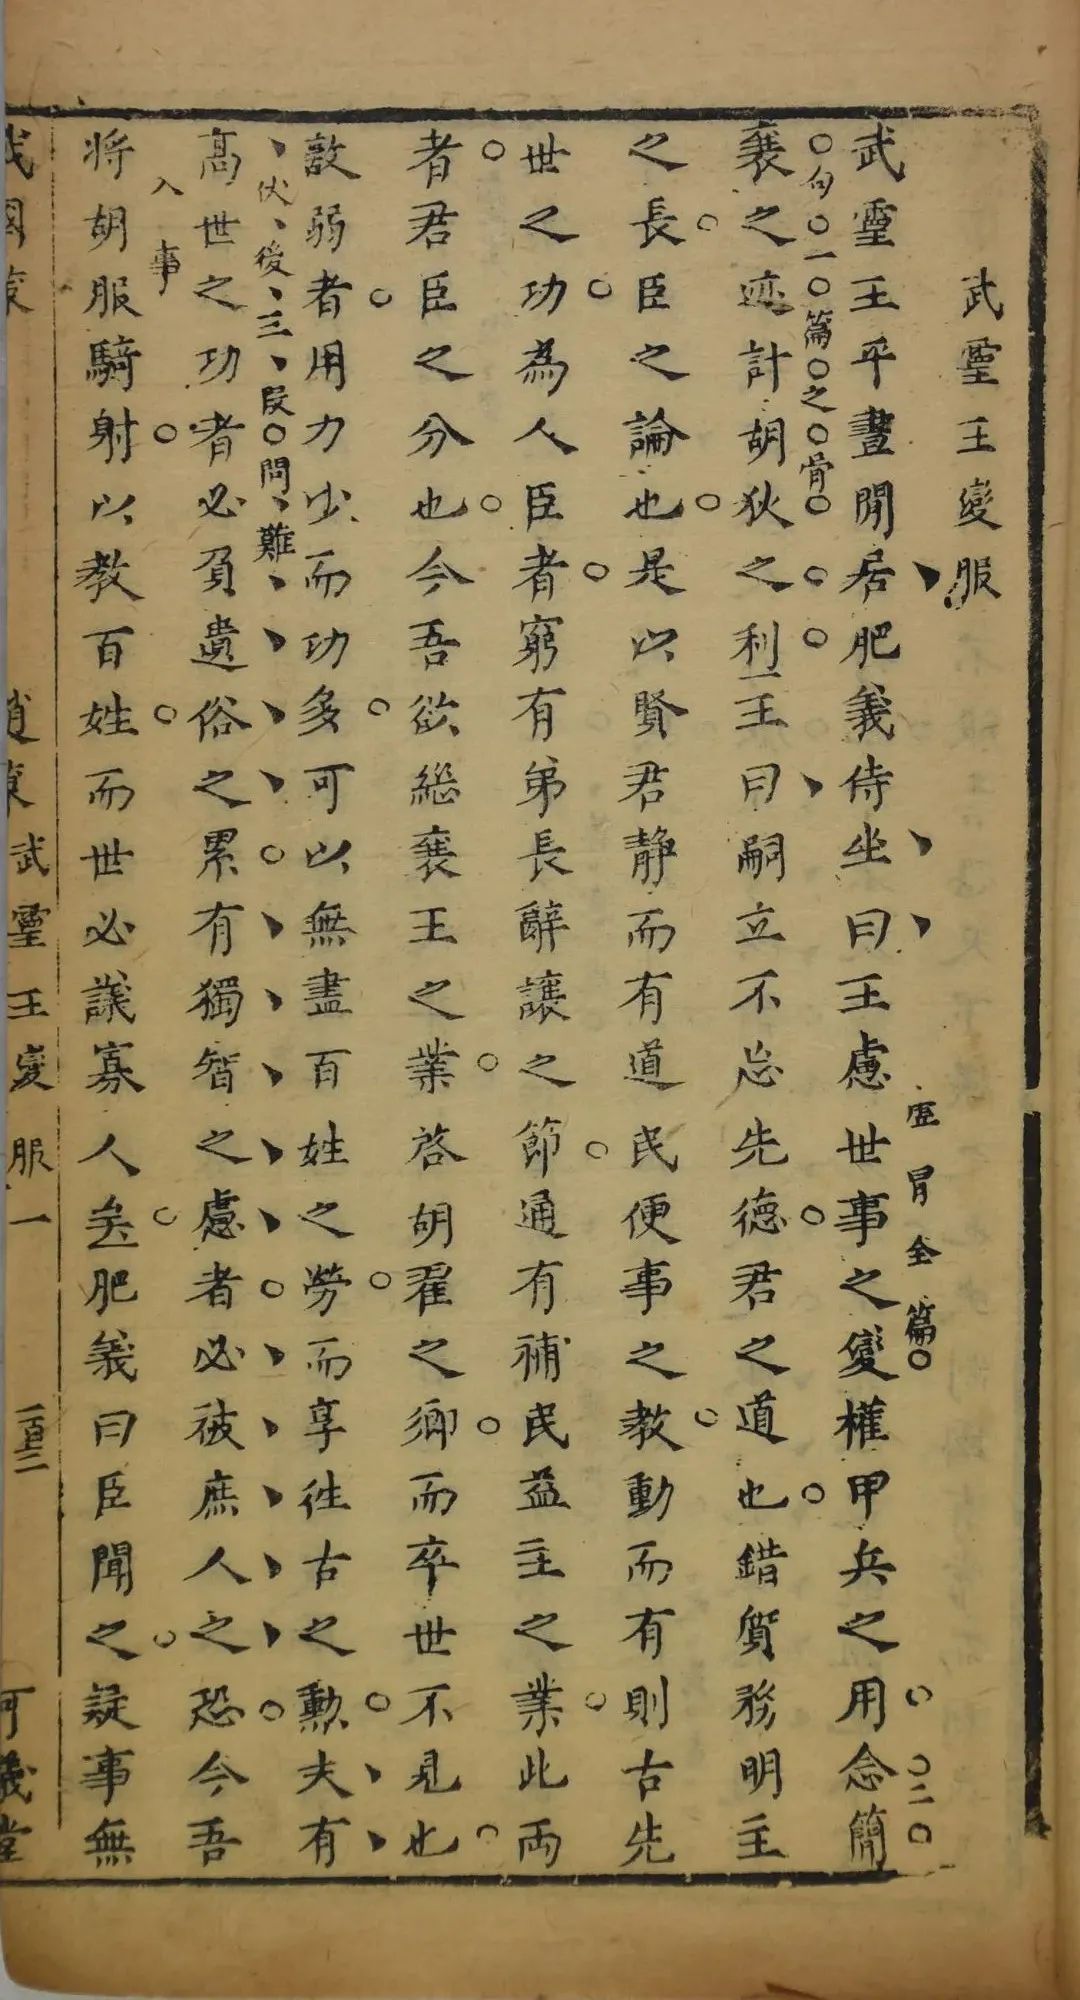 武靈王變服
武靈王平晝閒居肥義侍坐曰王慮世事之變權甲兵之用念簡
冒全篇
二
襄之迹計胡狄之利王曰嗣立不忘先德君之道也錯質務明主
句一篇之骨
之長臣之論也是以賢君静而有道民便事之教動而有則古先
世之功為人臣者窮有弟長辭讓之節通有補民益主之業此兩
者君臣之分也今吾欲繼襄王之業啓胡翟之鄉而卒世不見也
敵弱者用力少而功多可以無盡百姓之勞而享徃古之勲夫有
伏後三段問難
髙世之功者必負遺俗之累有獨智之慮者必被庶人之恐今吾
入事
将胡服騎射以教百姓而世必議寡人矣肥義曰臣聞之疑事無
戰國策 趙策武靈王變服一